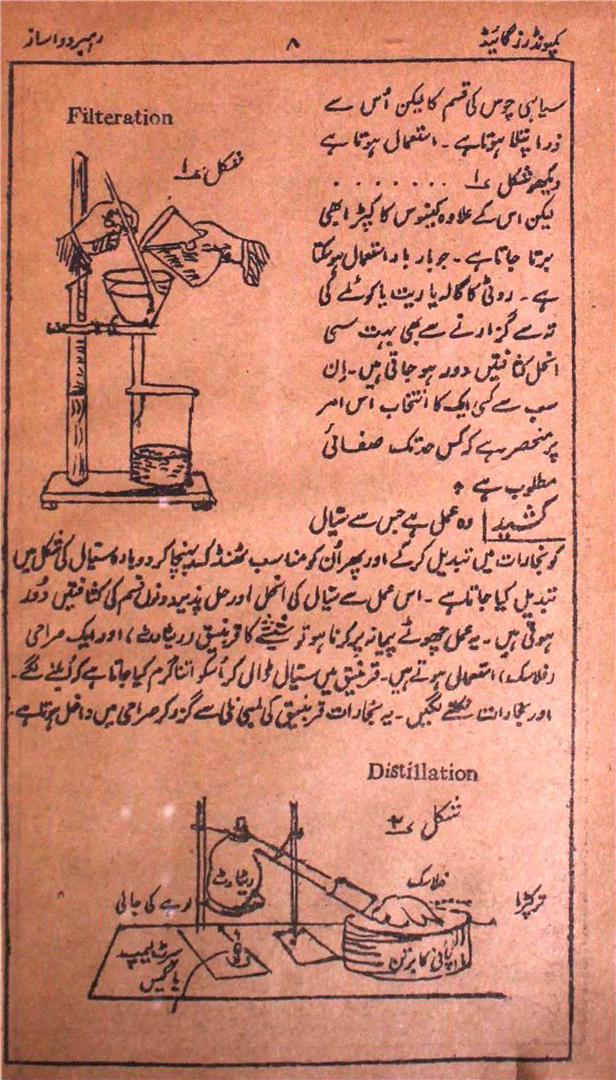 کمپونڈرز گائیڈ
۸
رہبر دواساز
سیاہی چوس کی قسم کا لیکن اُس سے
ذرا پتلا ہوتا ہے۔ استعمال ہوتا ہے
دیکھو شکل ۱ . . . . . . . .
لیکن اس کے علاوہ کینوس کا کپڑا بھی
برتا جاتا ہے۔ جو بار بار استعمال ہو سکتا
ہے۔ روئی کا گالہ یا ریت یا کوئلے کی
تہ سے گزارنے سے بھی بہت سی
انحل کثافتیں دور ہو جاتی ہیں۔ اِن
سب سے کسی ایک کا انتخاب اس امر
پر منحصر ہے کہ کس حد تک صفائی
مطلوب ہے ؞
Filteration
شکل ۱
کشید وہ عمل ہے جس سے سیّال
کو بخارات میں تبدیل کر کے اور پھر اُن کو مناسب ٹھنڈک پہنچا کر دوبارہ سیال کی شکل میں
تبدیل کیا جاتا ہے۔ اس عمل سے سیّال کی انحل اور حل پذیر دونوں قسم کی کثافتیں دُور
ہوتی ہیں۔ یہ عمل چھوٹے پیمانہ پر کرنا ہو تو شیشے کا قرنبیق (ریٹارٹ)، اور ایک صراحی
(فلاسک) استعمال ہوتے ہیں۔ قرنبیق میں سیال ڈال کر اُسکو اتنا گرم کیا جاتا ہے کہ اُبلنے لگے۔
اور بخارات نکلنے لگیں۔ یہ بخارات قرنبیق کی لمبی نلی سے گزر کر صراحی میں داخل ہوتا ہے۔
Distillation
شکل ۲
ریٹارٹ
فلاسک
تر کپڑا
لوہے کی جالی
پانی کا برتن
سپرٹ لیمپ
یا گیس